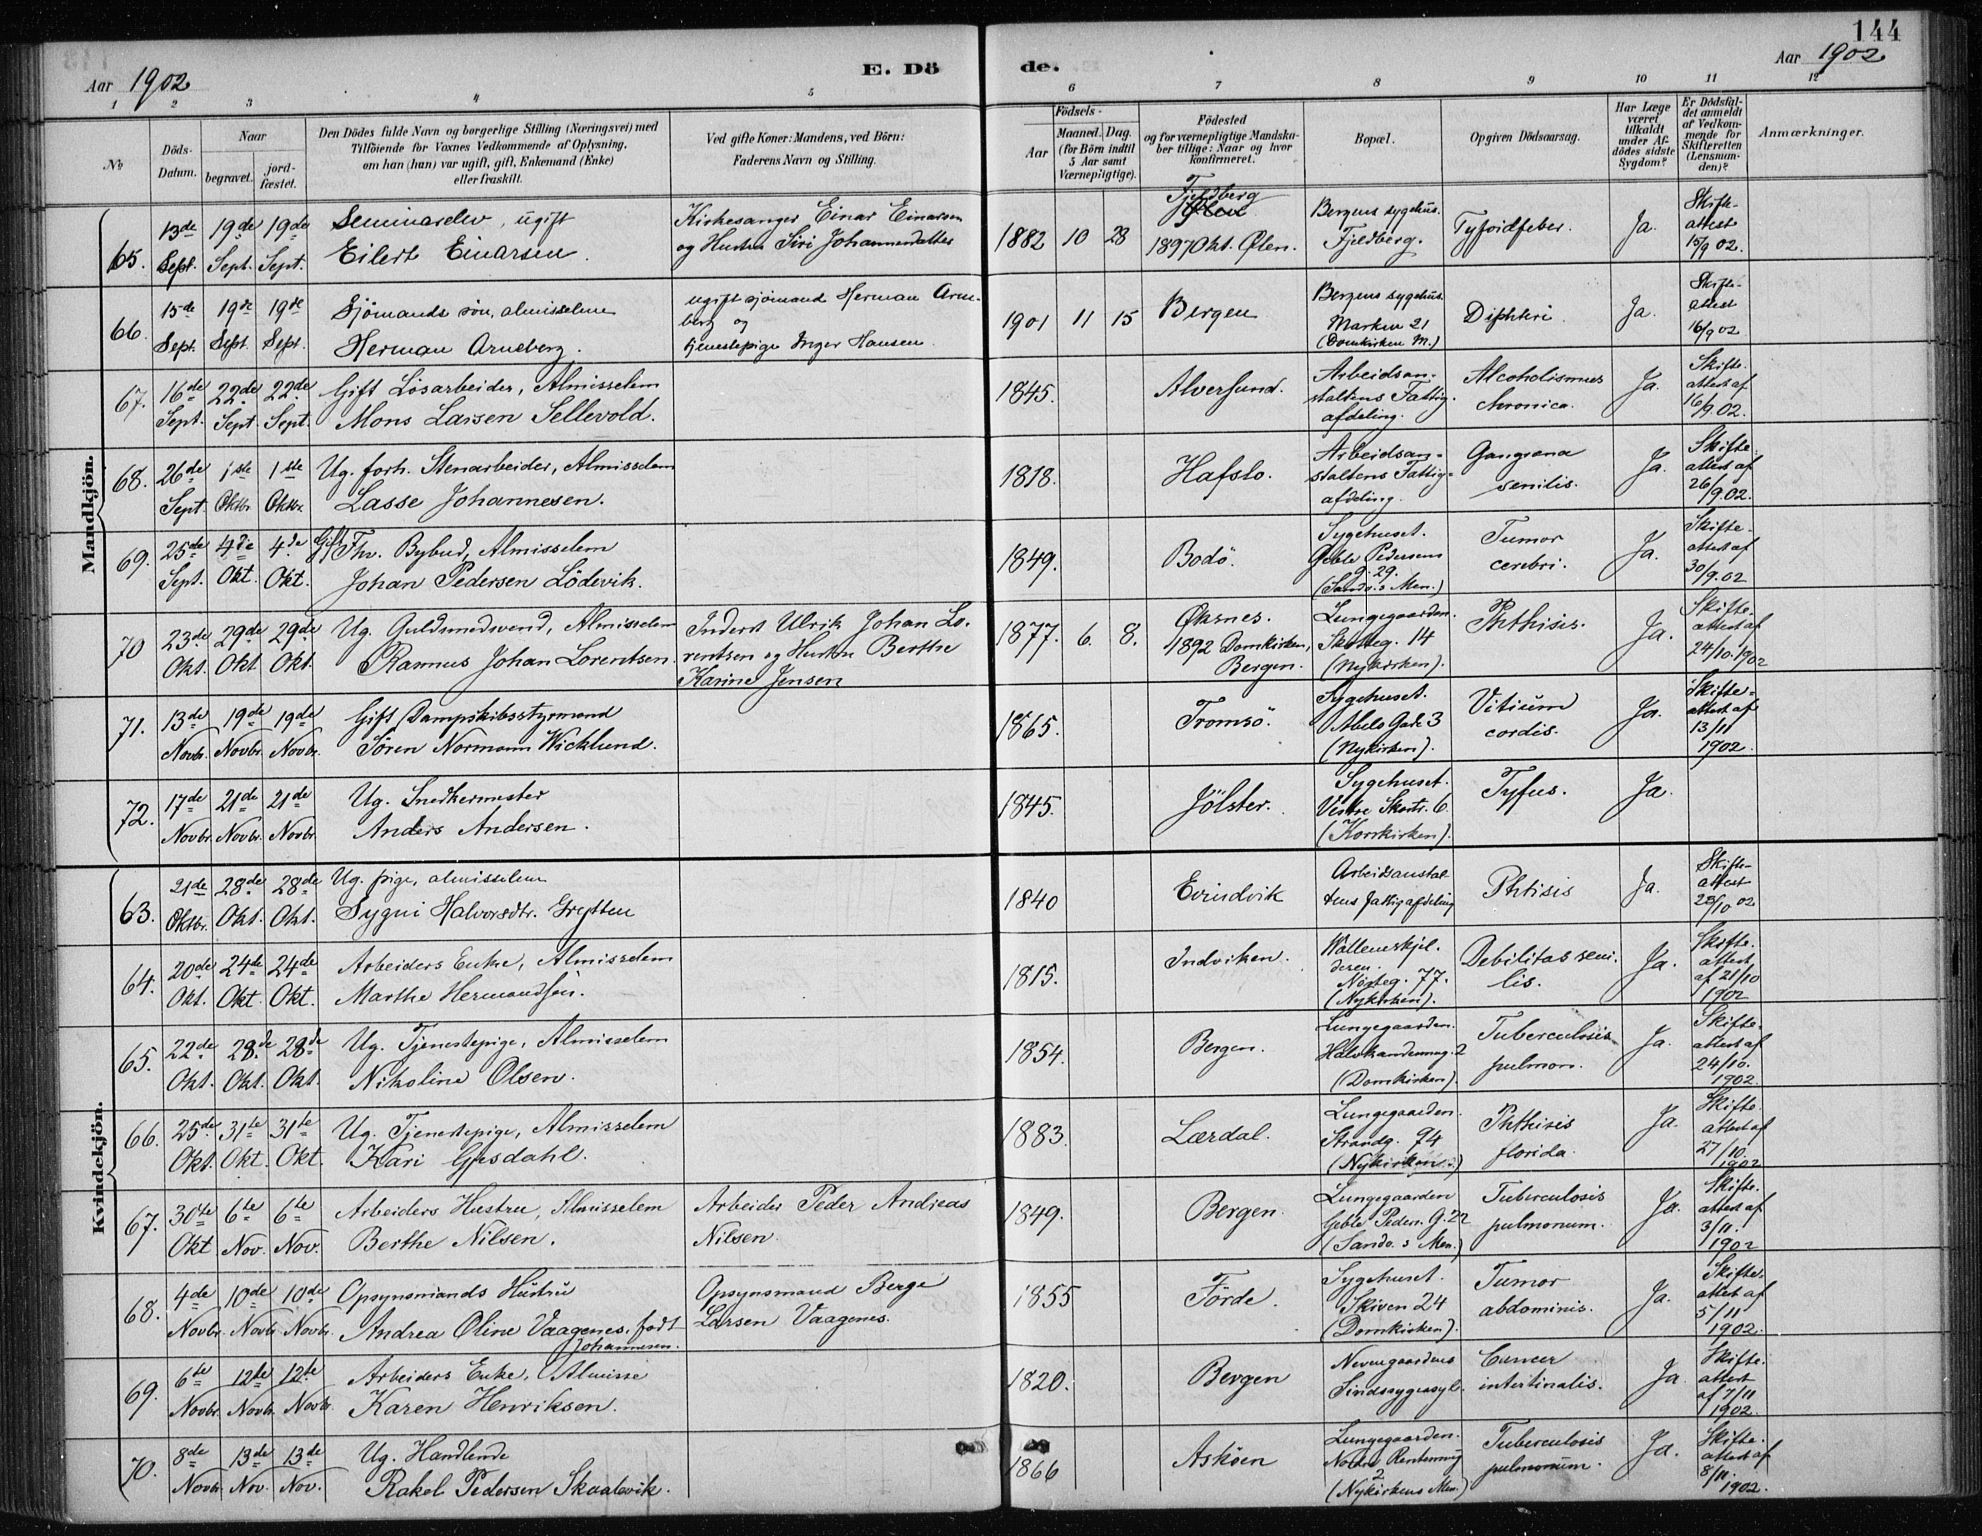 144
Aar 1902
E. Dö
de.
Aar 1902
1 2 3 4 5 6 7 8 9 10 11 12
No
Döds-Datum.
Naar
begravet.
jord-fæstet.
Den Dödes fulde Navn og borgerlige Stilling (Næringsvei) med
Tilföiende for Voxnes Vedkommende af Oplysning,
om han (hun) var ugift, gift, Enkemand (Enke)
eller fraskilt.
Ved gifte Koner: Mandens, ved Börn:
Faderens Navn og Stilling.
Födsels-
Aar
Maaned. Dag.
(for Börn indtil
5 Aar samt
Værnepligtige).
Födested
og for værnepligtige Mandska-
ber tillige: Naar og hvor
konfirmeret.
Bopæl.
Opgiven Dödsaarsag.
Har Læge
været
tilkaldt
under Af-
dödes sidste
Sygdom?
Er Dödsfal-
det anmeldt
af Vedkom-
mende for
Skifteretten
(Lensman-
den)?
Anmærkninger.
Mandkjön.
65. 13de Sept. 19de Sept. 19de Sept.
Seminarelev, ugift
Eilert Einarsen.
Kirkesanger Einar Einarsen
og Hustru Siri Johannesdatter
1882 10 28
Fjeldberg
1897 Okt. Ølen.
Bergens sygehus.
Fjeldberg.
Tyfoidfeber.
Ja.
Skifte-
attest
15/9 02.
66. 15de Sept. 19de Sept. 19de Sept.
Sjömands sön, almisselem
Herman Arneberg.
ugift sjömand Herman Arne-
berg og
tjenestepige Inger Hansen.
1901 11 15
Bergen
Bergens sygehus.
Marken 21
(Domkirken M.)
Diphteri.
Ja.
Skifte-
attest
16/9 02
67. 16de Sept. 22de Sept. 22de Sept.
Gift Løsarbeider, Almisselem
Mons Larsen Sellevold.
1845.
Alversund.
Arbeidsan-
staltens Fattig-
afdeling.
Alcoholismus
chronica.
Ja.
Skifte-
attest af
16/9 02.
68. 26de Sept 1ste Oktbr. 1ste Oktbr.
Ug. forh. Stenarbeider, Almisselem
Lasse Johannesen.
1818.
Hafslo.
Arbeidsan-
staltens Fattig-
afdeling.
Gangræna
senilis.
Ja.
Skifte
attest af
26/9 02.
69. 25de Sept. 4de Okt. 4de Okt.
Gift Fhv. Bybud, Almisselem
Johan Pedersen Lödevik.
1849.
Bodö.
Sygehuset.
Geble Pedersens
g. 29.
(Sandv.s Men.)
Tumor
cerebri.
Ja.
Skifte-
attest af
30/9.02
70 23de Okt. 29de Okt. 29de Okt.
Ug. Guldsmedsvend, Almisselem
Rasmus Johan Lorentsen.
Inderst Ulrik Johan Lo-
rentsen og Hustru Berthe
Karine Jensen
1877. 6. 8.
Øksnes.
1892 Domkirken,
Bergen.
Lungegaarden.
Skotteg. 14
(Nykirken).
Phthisis.
Ja.
Skifte-
attest af
24/10.1902
71. 13de Novbr. 19de Novbr. 19de Novbr.
Gift Dampskibsstyrmand
Sören Normann Wicklund.
1865.
Tromsö.
Sygehuset.
Abels Gade 3
(Nykirken).
Vitium
cordis.
Ja.
Skifte-
attest af
13/11
1902.
72. 17de Novbr. 21de Novbr. 21de Novbr.
Ug. Snedkermester
Anders Andersen.
1845.
Jölster.
Sygehuset.
Vestre Skostr. 6
(Korskirken).
Tyfus.
Ja.
Kvindekjön.
63. 21de Oktbr. 28de Okt. 28de Okt.
Ug. pige, almisselem
Sygni Halvorsdtr. Grytten
1840
Evindvik
Arbeidsanstal
tens fattigafdeling
Phtisis
Ja.
Skifte-
attest
22/10 02
64. 20de Okt. 24de Okt. 24de Okt.
Arbeiders Enke, Almisselem
Marthe Hermandsen.
1815.
Indviken.
Nösteg. 77.
(Nykirken).
Debilitas seni-
lis.
Ja.
Skifte-
attest
af 21/10
1902
65. 22de Okt. 28de Okt. 28de Okt.
Ug. Tjenestepige, Almisselem
Nikoline Olsen.
1854.
Bergen.
Lungegaarden.
2
(Domkirken).
Tuberculosis
pulmon.
Ja.
Skifte-
attest af
24/10.
1902.
66. 25de Okt. 31te Okt 31te Okt.
Ug. Tjenestepige, Almisselem
Kari Gjesdahl.
1883.
Lærdal.
Lungegaarden.
Strandg. 94
(Nykirken.)
Phthisis
florida.
Ja.
Skifte.
attest af
27/10.
1902
67. 30te Okt 6te Nov. 6te Nov.
Arbeiders Hustru, Almisselem
Berthe Nilsen.
Arbeider Peder Andreas
Nilsen.
1849.
Bergen.
Lungegaarden
Geble Peders. G. 22
(Sandv.s Men.)
Tuberculosis
pulmonum.
Ja.
Skifte.
attest af
3/11.
1902
68. 4de Novbr. 10de Novbr. 10de Novbr.
Opsynsmands Hustru
Andrea Oline Vaagenes, født
Johannesen.
Opsynsmand Berge
Larsen Vaagenes.
1855
Förde.
Sygehuset.
Skiven 24
(Domkirken).
Tumor
abdominis.
Ja.
Skifte-
attest af
5/11
1902.
69. 6te Novbr. 12te Novbr. 12te Novbr.
Arbeiders Enke, Almisse
Karen Henriksen.
1820.
Bergen
Nevengaardens
Sindssygeasyl.
Cancer
intestinalis.
Ja.
Skifte.
attest
af 7/11
1902.
70. 8de Novbr. 13de Nov. 13de Nov.
Ug. Handlende
Rakel Pedersen Skaalevik.
1866
Asköen
Lungegaarden.
2
(Nykirkens Men.)
Tuberculosis
pulmonum.
Ja.
Skifte.
attest af
8/11.
1902.